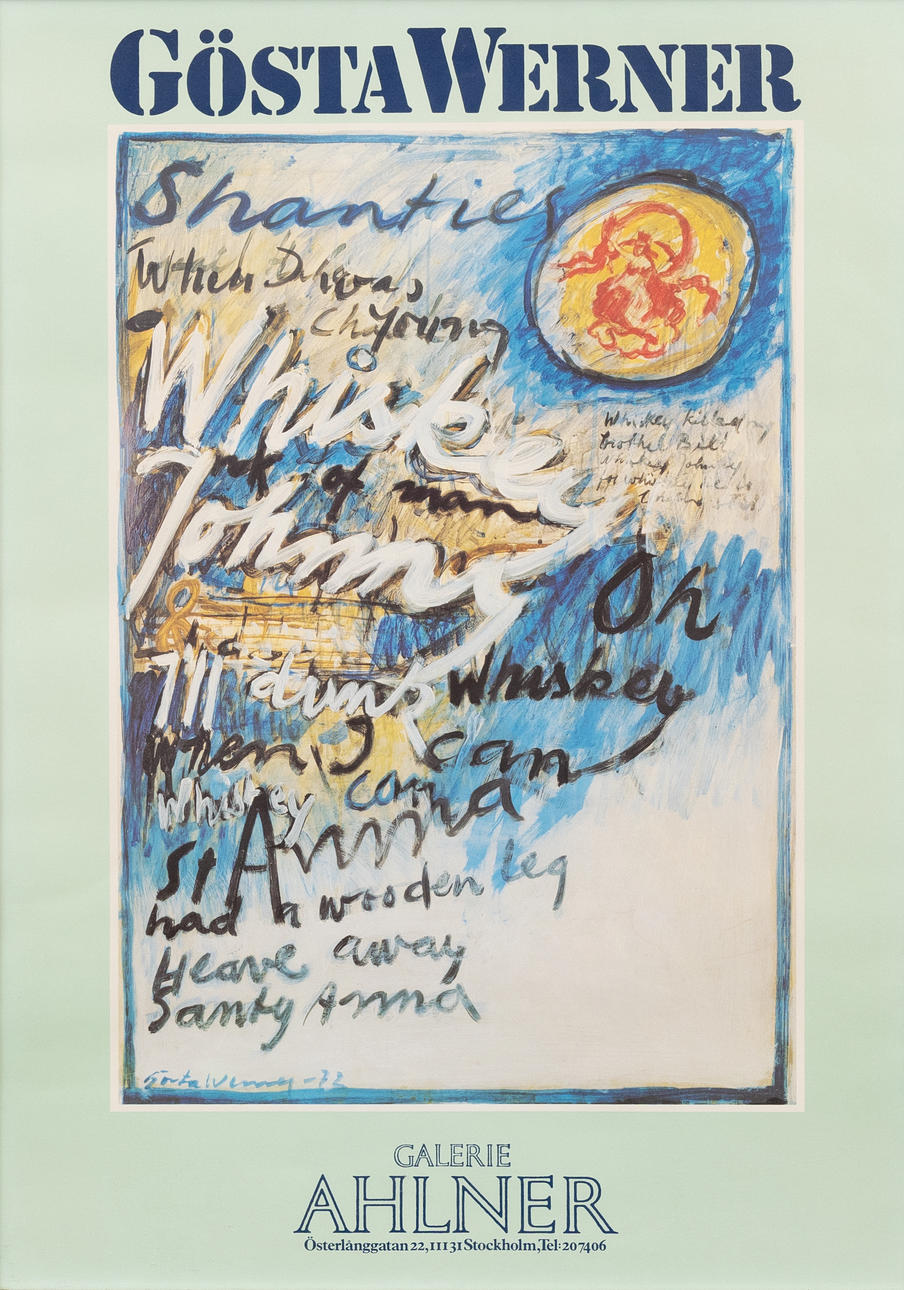 GÖSTA WERNER
Shanties
When I was
Young
Whiskey
of man
Johnny
Oh
Whiskey killed my
brother Bill
Whiskey Johnny
I'll drink Whiskey
when I can
Whiskey can
St Anna
had a wooden leg
Heave away
Santy Anna
Gösta Werner -72
GALERIE
AHLNER
Österlånggatan 22, 11131 Stockholm, Tel: 207406